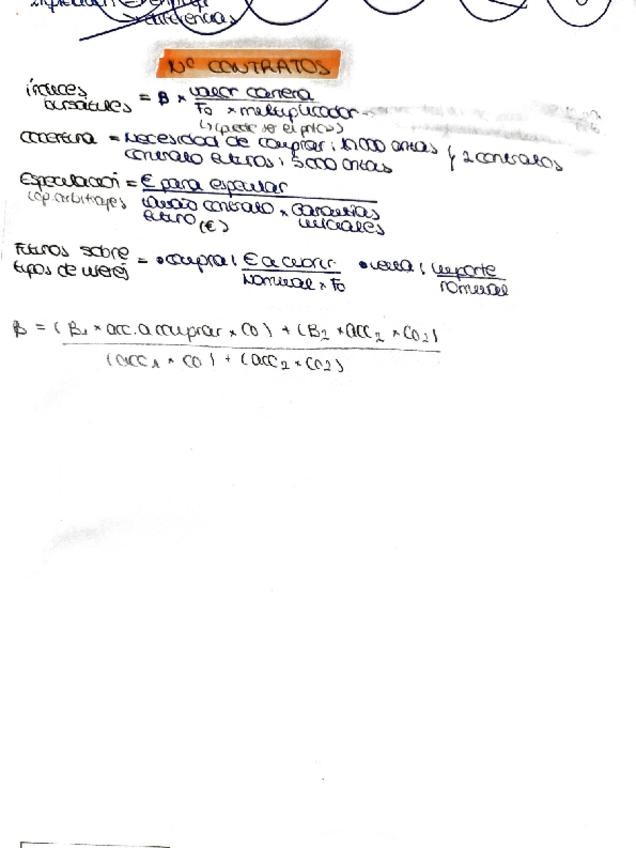 diferencias
Nº CONTRATOS
índices bursátiles = B × valor cartera / Fo × multiplicador
(↳ puede ser el precio)
cobertura = Necesidad de comprar: 10.000 onzas } 2 contratos
contrato futuros: 5.000 onzas
Especulación = € para especular / tamaño contrato futuro (€) × Garantías iniciales
(op. arbitraje)
Futuros sobre tipos de interés = • compra: € a cubrir / Nominal × Fo • venta: importe / nominal
B = (B₁ × acc. a comprar × CO) + (B₂ × acc₂ × CO₂) / (acc₁ × CO) + (acc₂ × CO₂)